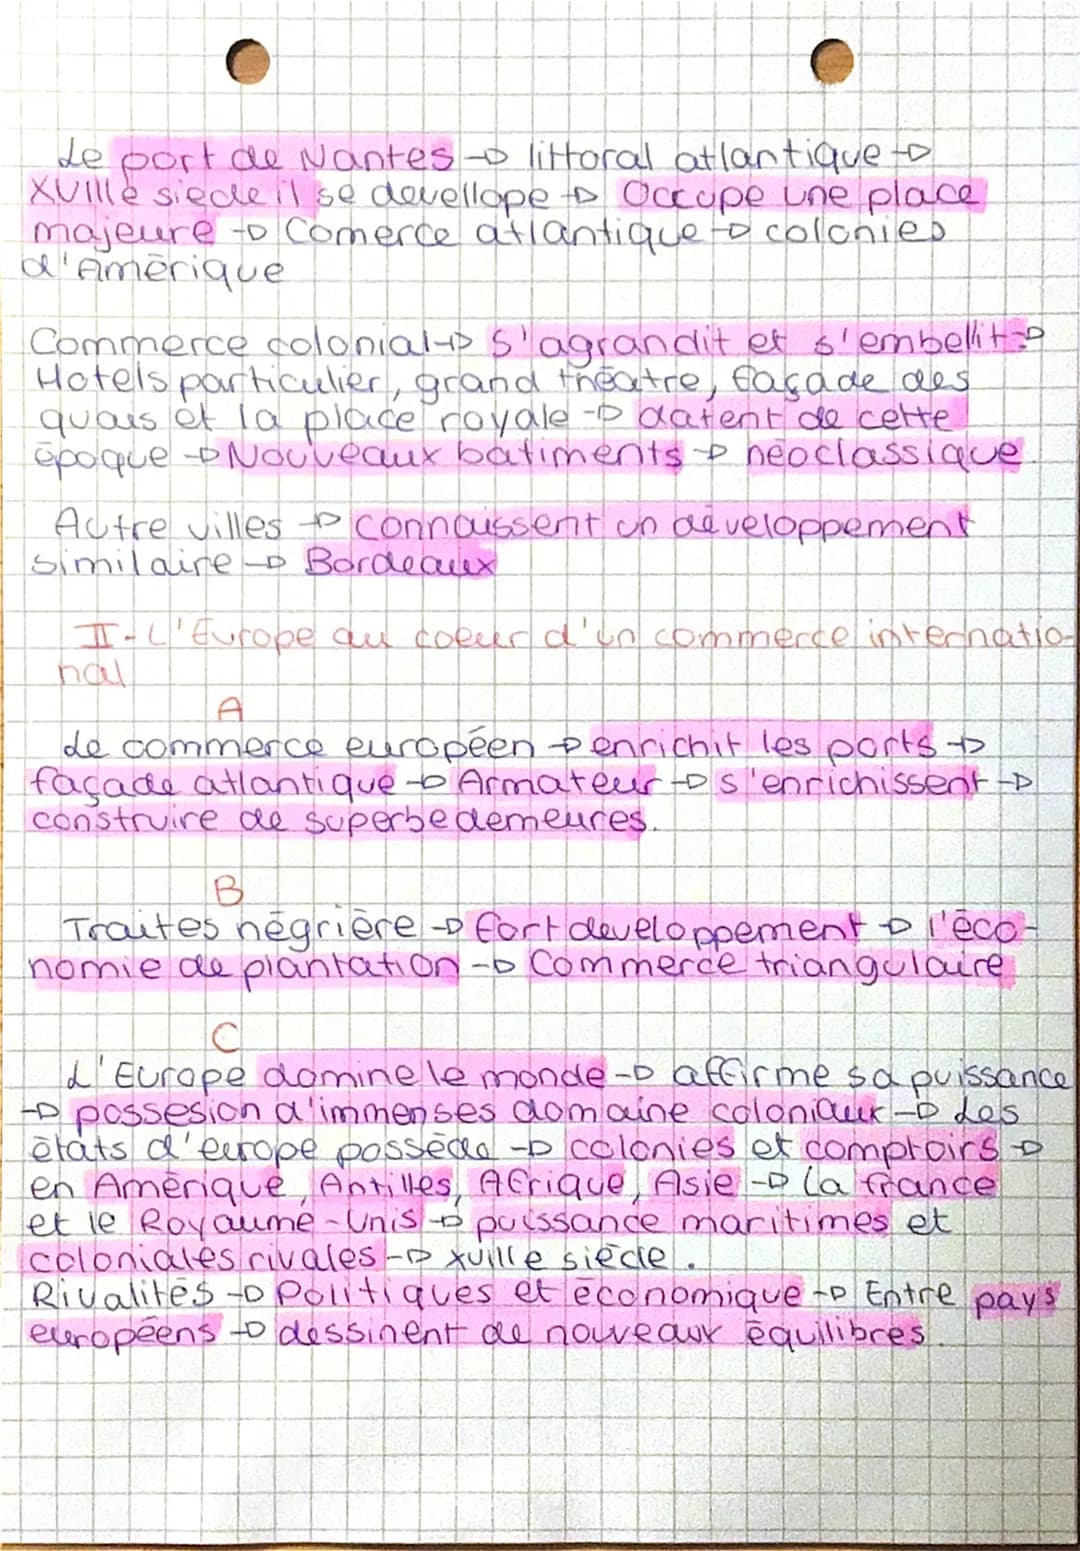 Le port de Nantes → littoral atlantique →
XVIIIe siècle il se devellope → Occupe une place
majeure → Comerce atlantique → colonies
d'Amérique
Commerce colonial → S'agrandit et s'embellit →
Hotels particulier, grand théatre, façade des
quais et la place royale → datent de cette
époque → Nouveaux batiments → néoclassique
Autre villes → connaissent un développement
similaire → Bordeaux
II - L'Europe au coeur d'un commerce internatio-
nal
A
Le commerce européen → enrichit les ports →
façade atlantique → Armateur → s'enrichissent →
construire de superbe demeures.
B
Traites négrière → fort developpement → l'éco-
nomie de plantation → Commerce triangulaire
C
L'Europe domine le monde → affirme sa puissance
→ possesion d'immenses domaine coloniaux → Les
états d'europe possède → colonies et comptoirs →
en Amérique, Antilles, Afrique, Asie → La france
et le Royaume-Unis → puissance maritimes et
coloniales rivales → XVIIIe siècle.
Rivalités → Politiques et économique → Entre pays
européens → dessinent de nouveaux équilibres.